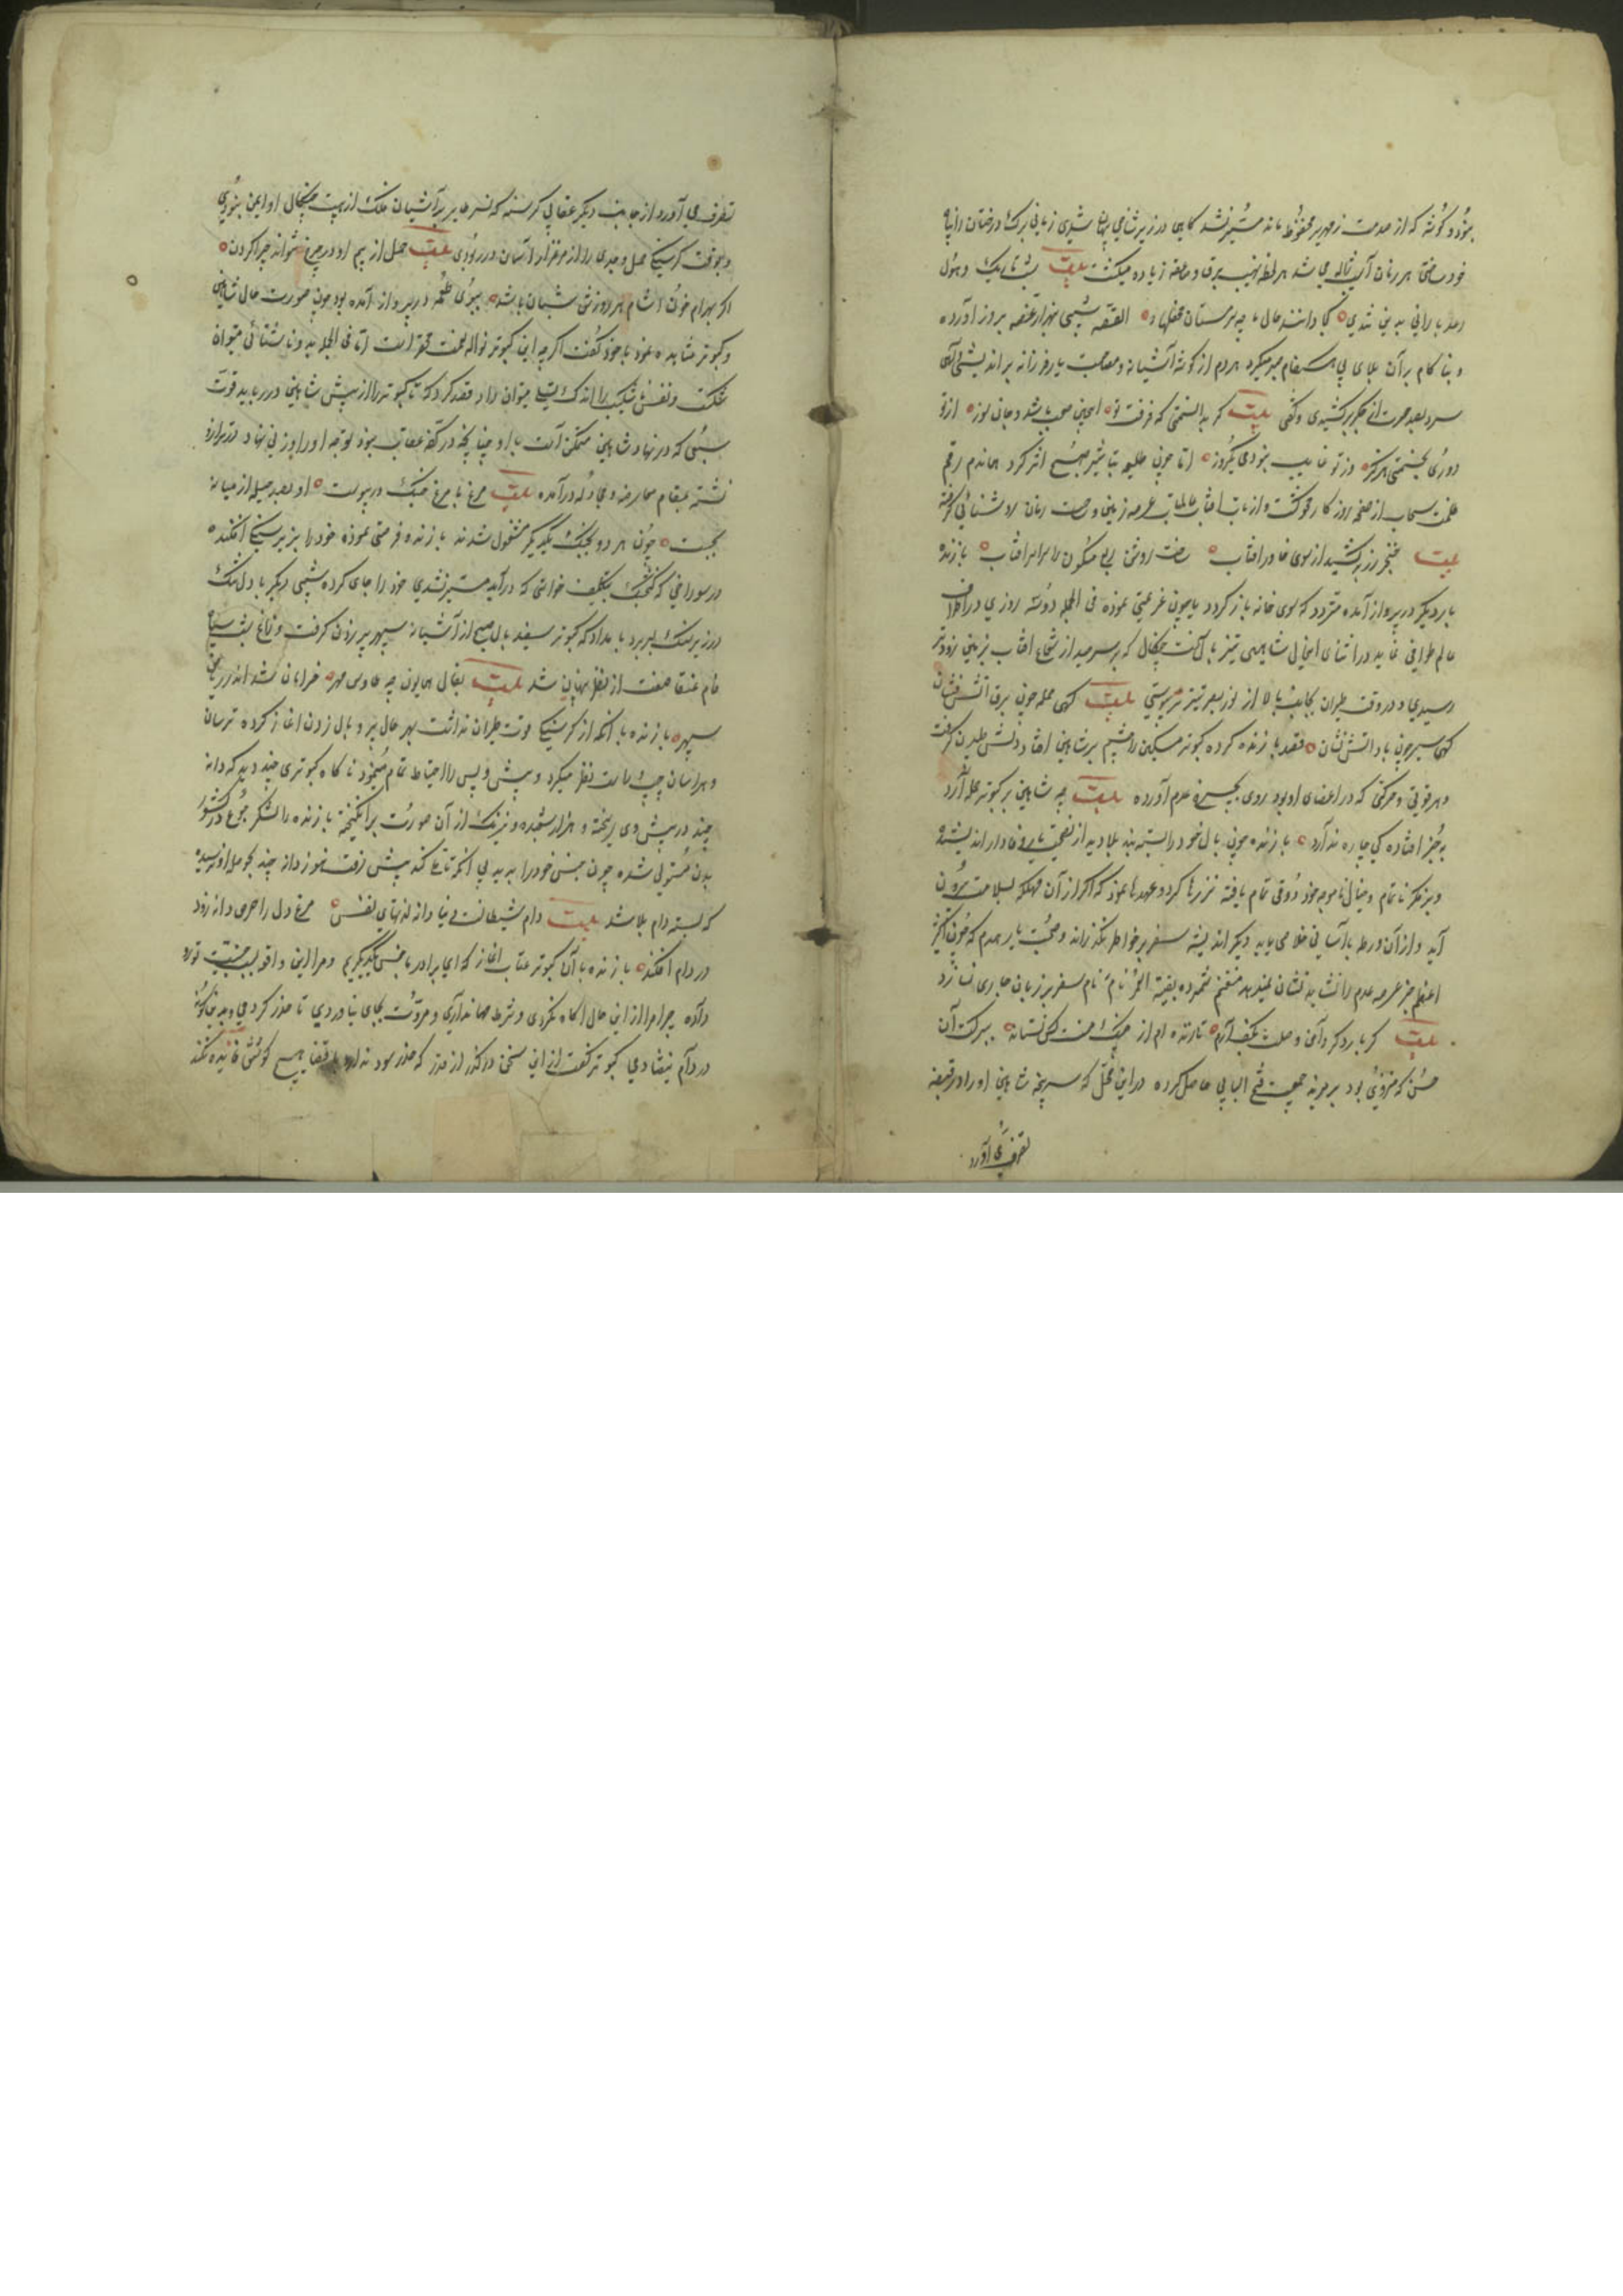 نبود و گوشه که از صدمت زمهریر محفوظ ماند میسر نشد گاهی در زیر شاخی پنهان شدی زمانی برک درختان را پناه
خود ساختی هر زمان آسیب ژاله می شد هر لحظه نهیب برق و صاعقه زیاده میگشت بیت شب تاریک و هول
رعد بارانی بدینی تندی کجا دانند حال ما چو سرمستان محفلها القصه شبی بهزار غصه بروز آورده
و بنا کام بر آن بلای بی هنگام صبر میکرد هر دم از گوشه آشیانه و مصاحبت یار فرزانه براندیشیدی آهی
سرد بصد حسرت از جگر برکشیدی و گفتی بیت گر بدانستمی که فرقت تو اینچنین صعب باشد و جان سوز از تو
دوری نجستمی هرگز وز تو غایب نبودمی یکروز اما چون طلیعه تباشیر صبح اثر کرد هماندم رقم
ظلمت سحاب از صفحه روزگار محو گشت و از تاب آفتاب عالمتاب عرصه زمین و ساحت زمان روشنائی گرفته
بیت خنجر زر برکشید از سوی خاور آفتاب ساخت روشن ربع مسکون را سراسر آفتاب بازنده
بار دیگر در پرواز آمده متردد که سوی خانه باز گردد یا چون عزیمتی نموده فی الجمله دو سه روزی در اطراف
عالم طوافی نماید در اثنای اینحال شاهینی تیز بال سخت چنگال که بر سر صید از شعاع آفتاب بزمین زودتر
رسیدی و در وقت طیران بجانب بالا از نور بصر تیزتر پریدی بیت گهی حمله چون برق آتش فشان
گهی سیر چون باد آتش نشان قصد بازنده کرده کبوتر مسکین را چشم بر شاهین افتاد دلش طپیدن گرفت
و هر قوتی و حرکتی که در اعضای او بود روی بحیز عدم آورده بیت چو شاهین بر کبوتر حمله آرد
بجز افتاده گی چاره ندارد بازنده چون بال خود را بسته بند بلا دید از نصیحت یار وفادار اندیشید
و بر فکر ناتمام و خیال ناموجه خود وقوف تمام یافته نذرها کرد و عهدها نمود که اگر از آن مهلکه بسلامت بیرون
آید و از آن ورطه بآسانی خلاصی یابد دیگر اندیشه سفر بر خاطر نگذراند و صحبت یار همدم که چون اکسیر
اعظم جز عرصه عدم را نشاید نشان نمیدهد مغتنم شمرده بقیة العمر نام سفر بر زبان جاری نسازد
بیت گر بار دگر دامن وصلت بکف آرم تا زنده ام از چنگ منت کس نستاند ببرکت آن
حسن که منوی بود بر مرتبه جمعیت فتح البابی حاصل کرده در این محل که سرپنجه شاهین او را در قبضه
تصرف می آورد
تصرف می آورد از جانب دیگر عقابی گرسنه که نسر طایر بر آشیان فلک از هیبت چنگال او ایمن نبودی
و بوقت گرسنگی حمل و جدی را از مرغزار آسمان در ربودی بیت حمل از بیم او در چرخ نتواند چرا کردن
اگر بهرام خون آشام هر روزش شبان باشد ببوی طعمه در پرواز آمده بود چون صورت حال شاهین
و کبوتر مشاهده نمود با خود گفت اگر چه این کبوتر نواله سخت محقر است اما فی الجمله بدو ناشتائی میتوان
شکست و نفس ناشکیب را اندک تسلی میتوان داد قصد کرد که تا کبوتر را از پیش شاهین در رباید قوت
سبعی که در نهاد شاهین متمکن است با او چنانچه در کفه عقاب نبود توجه او را وزنی نهاد در ترازو
نشسته بمقام معارضه و مجادله درآمده بیت مرغ با مرغ جنگ در پیوست او بصد حیله از میانه
بجست چون هر دو بجنگ یکدیگر مشغول شدند بازنده فرصتی نموده خود را بزیر سنگی افکند
در سوراخی که کنجشک بتکلیف خواستی که درآید میسر نشدی خود را جای کرده شبی دیگر با دل تنگ
در زیر سنگ بسر برد بامداد که کبوتر سفید بال صبح از آشیانه سپهر پریدن گرفت و زاغ شب سیاه
فام عنقا صفت از نظر پنهان شد بیت بفال همایون چو طاوس مهر خرامان شد اندر ریاض
سپهر بازنده با آنکه از گرسنگی قوت طیران نداشت بهر حال پر و بال زدن آغاز کرده ترسان
و هراسان چپ و راست نظر میکرد و پیش و پس را احتیاط تمام مینمود ناگاه کبوتری چند دید که دانه
چند در پیش وی ریخته و هزار شعبده و نیرنگ از آن صورت برانگیخته بازنده را لشکر جوع در کشور
بدن مستولی شده چون جنس خود را بدید بی آنکه تامل کند پیش رفت هنوز دانه چند بحوصله او نرسیده
که بسته دام بلا شد بیت دام شیطانست دنیا دانه لذتهای نفس مرغ دل را حرص دانه زود
در دام افکند بازنده با آن کبوتر عتاب آغاز که ای برادر ما جنس یکدیگریم و مرا این واقعه بسبب جنسیت تو رو
داده چرا مرا از این حال آگاه نکردی و شرط مهمانداری و مروت بجای نیاوردی تا حذر کردمی و بدین گونه
در دام نیفتادمی کبوتر گفت از این سخن درگذر از قدر که حذر سود ندارد با قضا هیچ کوشش فایده نکند